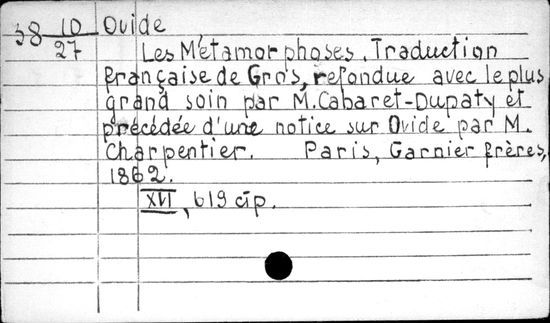 38 10/27 Ovide
Les Métamorphoses. Traduction
française de Gros, refondue avec le plus
grand soin par M. Cabaret-Dupaty et
précédée d'une notice sur Ovide par M.
Charpentier. Paris, Garnier frères,
1862.
XVI, 619 стр.